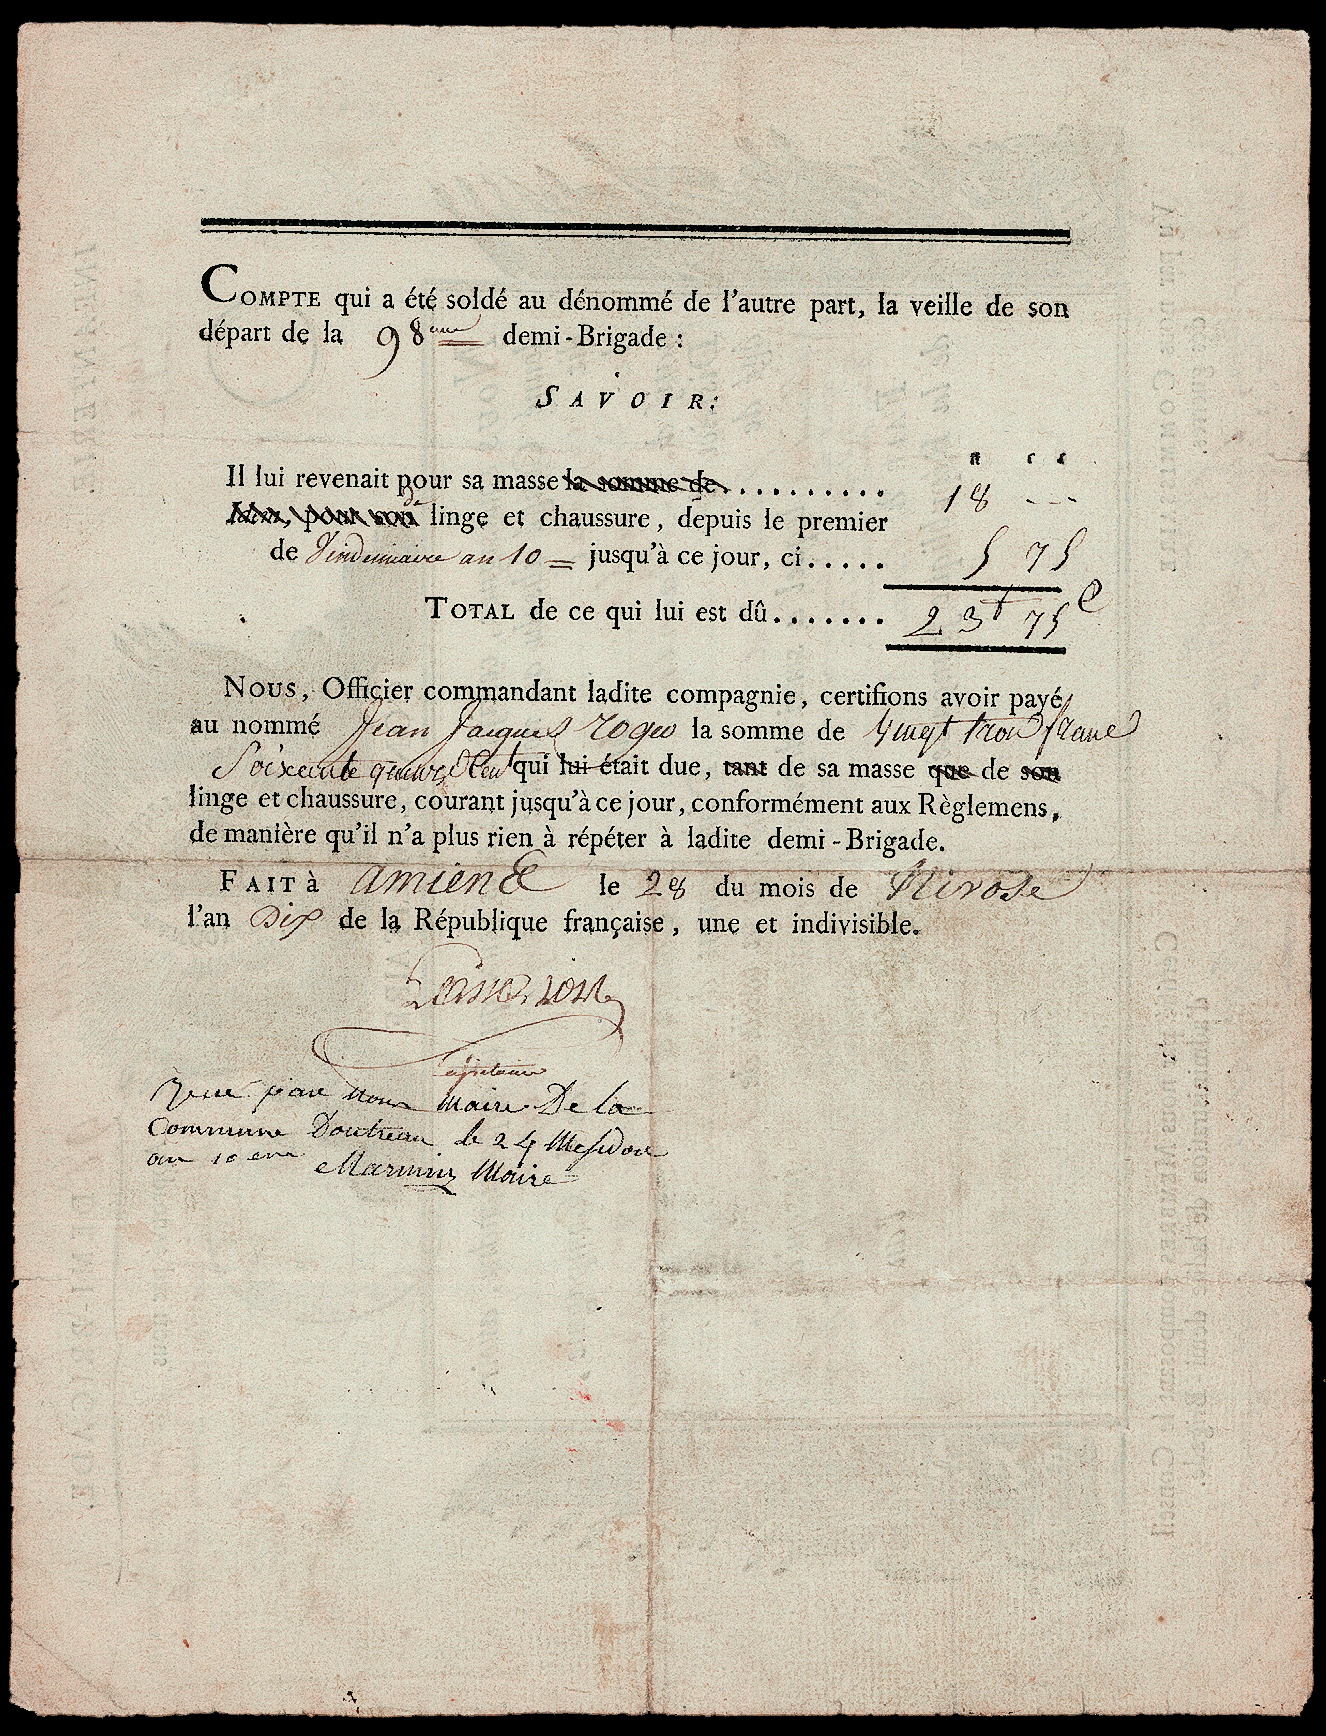 COMPTE qui a été soldé au dénommé de l'autre part, la veille de son
départ de la 98eme demi-Brigade :
SAVOIR:
Il lui revenait pour sa masse la somme de..........
18 --
Idem, pour son de linge et chaussure, depuis le premier
de Vindemiaire an 10 = jusqu'à ce jour, ci..... 5 75
TOTAL de ce qui lui est dû....... 23f 75c
NOUS, Officier commandant ladite compagnie, certifions avoir payé
au nommé Jean Jacques la somme de Vingt trois franc
Soixente quinze Cent qui lui était due, tant de sa masse que de son
linge et chaussure, courant jusqu'à ce jour, conformément aux Règlemens,
de manière qu'il n'a plus rien à répéter à ladite demi-Brigade.
FAIT à Amiens le 28 du mois de Nivose
l'an Dix de la République française, une et indivisible.
Capitaine
par nous Maire De la
Commune Doutreau le 24 Mesidor
an 10 eme Marmin Maire